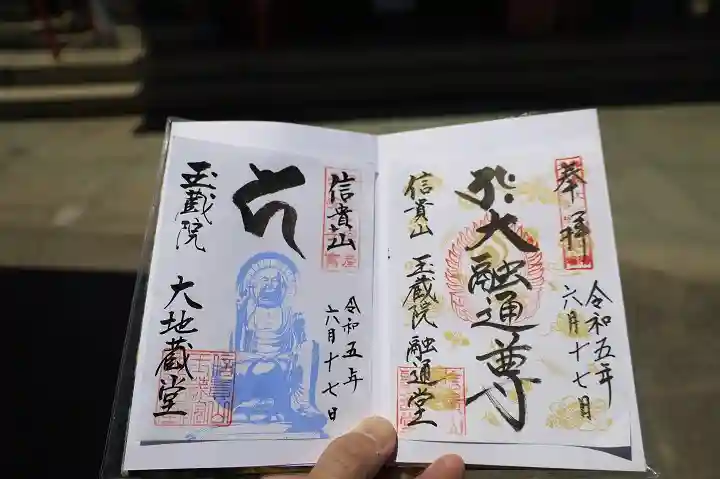 奉拝
令和五年
六月十七月
大融通尊
信貴山 玉蔵院 融通堂
信貴山
令和五年
六月十七日
玉蔵院 大地蔵堂